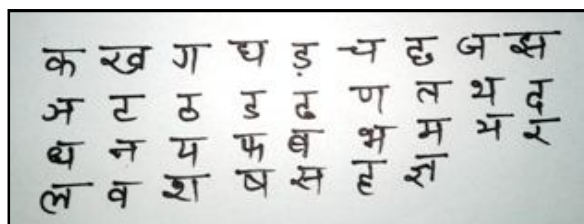 क ख ग घ ड़ च छ ज झ
ञ ट ठ ड ढ ण त थ द
ध न प फ ब भ म य र
ल व श ष स ह ज्ञ